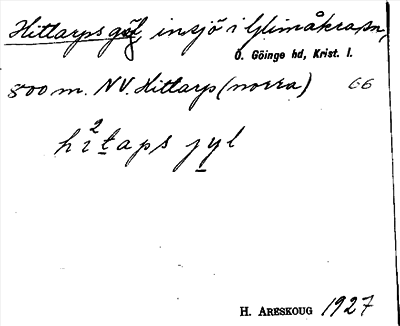 Hittarps göl, insjö i Glimåkra sn,
Ö. Göinge hd, Krist. l.
800 m. NV. Hittarp (norra) GG
hi²taps jyl
H. ARESKOUG 1927